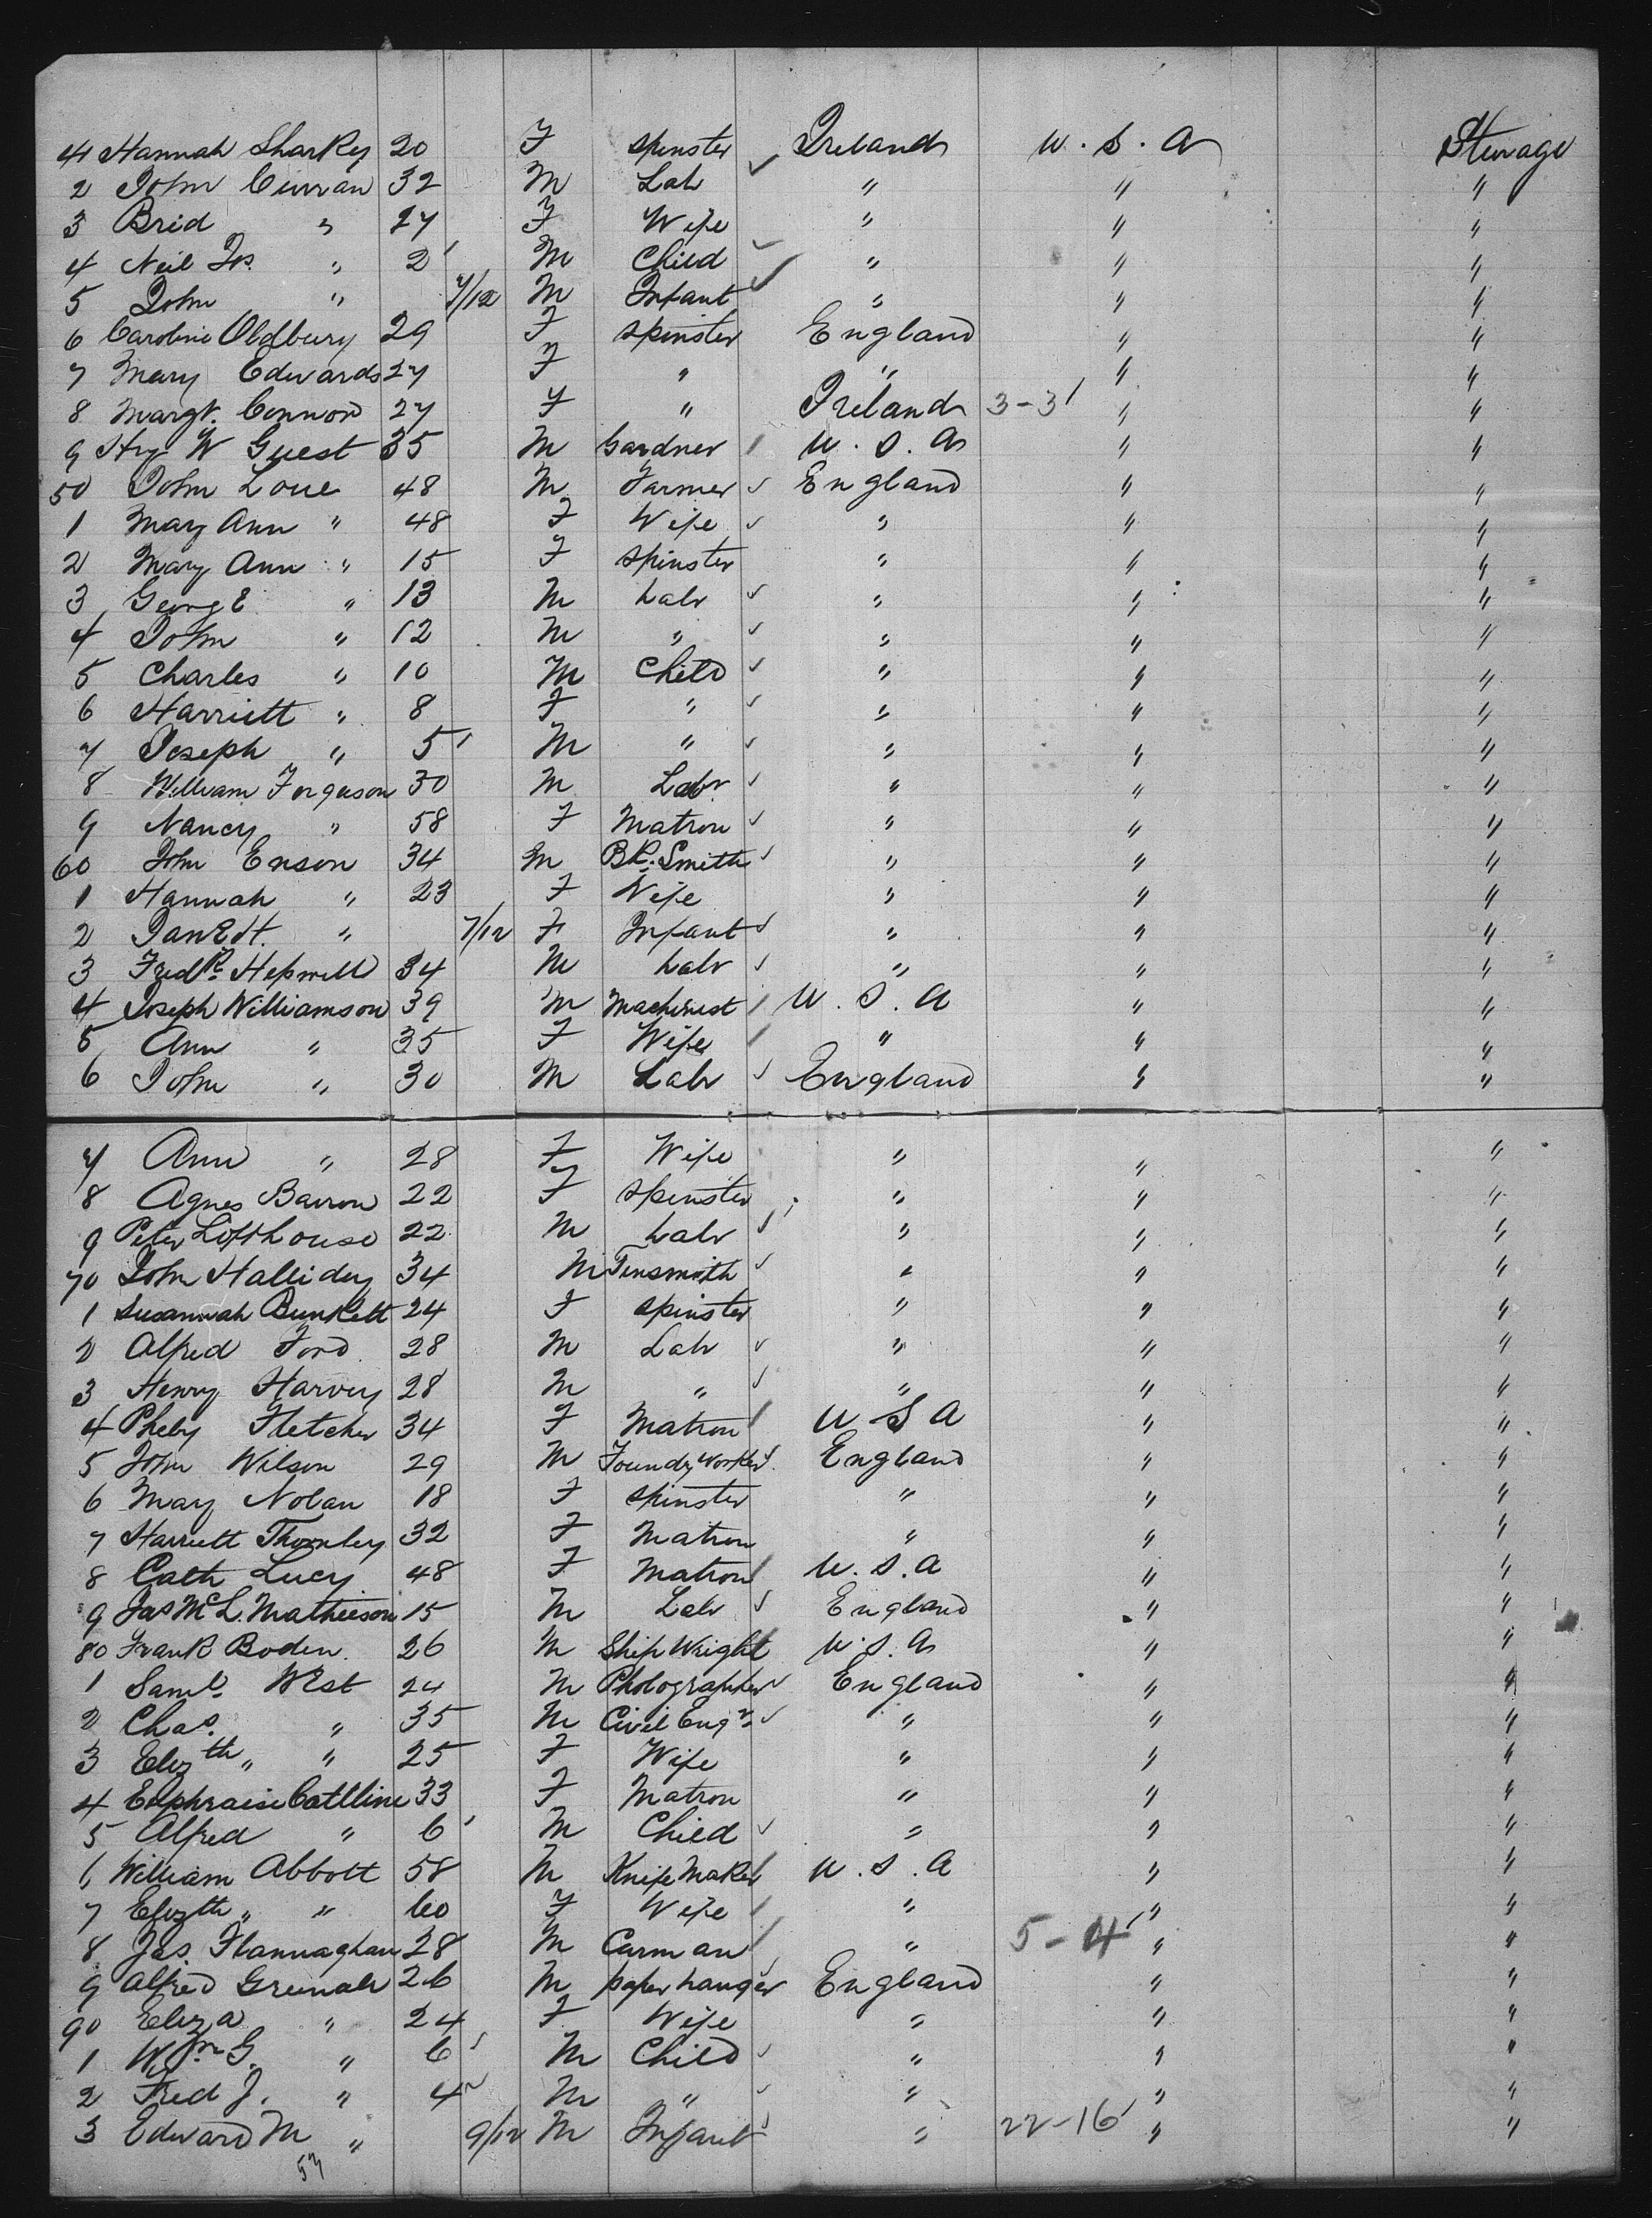 41 Hannah Sharkey 20 F Spinster Ireland U.S.A Steerage
2 John Curran 32 M Labr " " "
3 Brid " 27 F Wife " " "
4 Neil Jos. " 2 M Child " " "
5 John " 7/12 M Infant " " "
6 Caroline Oldbury 29 F Spinster England " "
7 Mary Edwards 27 F " " " "
8 Margt. Connor 27 F " Ireland 3-3 " "
9 Hry W Guest 35 M Gardner U.S.A " "
50 John Love 48 M Farmer England " "
1 Mary Ann " 48 F Wife " " "
2 Mary Ann " 15 F Spinster " " "
3 George " 13 M Labr " " "
4 John " 12 M " " " "
5 Charles " 10 M Child " " "
6 Harriett " 8 F " " " "
7 Joseph " 5 M " " " "
8 William Ferguson 30 M Labr " " "
9 Nancy " 58 F Matron " " "
60 John Enson 34 M Bk. Smith " " "
1 Hannah " 23 F Wife " " "
2 Jane H. " 7/12 F Infant " " "
3 Fredk. 34 M Labr " " "
4 Joseph Williamson 39 M Machinest U.S.A " "
5 Ann " 35 F Wife " " "
6 John " 30 M Labr England " "
7 Ann " 28 F Wife " " "
8 Agnes Barron 22 F Spinster " " "
9 Peter Lofthouse 22 M Labr " " "
70 John Halliday 34 M Tinsmith " " "
1 Susannah Bunkett 24 F Spinster " " "
2 Alfred Ford 28 M Labr " " "
3 Henry Harvey 28 M " " " "
4 Pheby Fletcher 34 F Matron U S A " "
5 John Wilson 29 M Foundry Worker England " "
6 Mary Nolan 18 F Spinster " " "
7 Harriett Thornley 32 F Matron " " "
8 Cath Lucy 48 F Matron U.S.A " "
9 Jas McL. Mathieson 15 M Labr England " "
80 Frank Boden 26 M Ship Wright U.S.A " "
1 Saml. West 24 M Photographer England " "
2 Chas. " 35 M Civil Engr. " " "
3 Elizth " " 25 F Wife " " "
4 Cattline 33 F Matron " " "
5 Alfred " 6 M Child " " "
6 William Abbott 58 M Knife Maker U.S.A " "
7 Elizth " " 60 F Wife " " "
8 Jas. Flannaghan 28 M Carman " 5-4 " "
9 Alfred 26 M paper hanger England " "
90 Eliza " 24 F Wife " " "
1 Wm G. " 6 M Child " " "
2 Fred J. " 4 M " " " "
3 Edward M " 9/12 M Infant " 22-16 " "
53